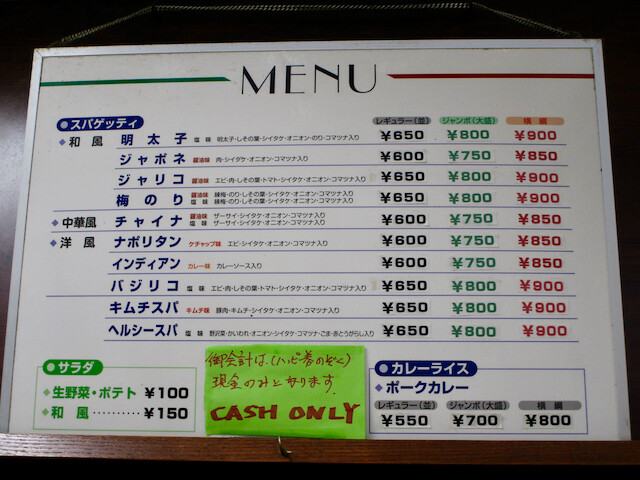 MENU
スパゲッティ レギュラー(並) ジャンボ(大盛) 横綱
和風 明太子 塩味 明太子・しその葉・シイタケ・オニオン・のり・コマツナ入り ¥650 ¥800 ¥900
ジャポネ 醤油味 肉・シイタケ・オニオン・コマツナ入り ¥600 ¥750 ¥850
ジャリコ 醤油味 エビ・肉・しその葉・トマト・シイタケ・オニオン・コマツナ入り ¥650 ¥800 ¥900
梅のり 醤油味 練梅・のり・しその葉・シイタケ・オニオン・コマツナ入り ¥650 ¥800 ¥900
塩味 練梅・のり・しその葉・シイタケ・オニオン・コマツナ入り
中華風 チャイナ 醤油味 ザーサイ・シイタケ・オニオン・コマツナ入り ¥600 ¥750 ¥850
塩味 ザーサイ・シイタケ・オニオン・コマツナ入り
洋風 ナポリタン ケチャップ味 エビ・シイタケ・オニオン・コマツナ入り ¥600 ¥750 ¥850
インディアン カレー味 カレーソース入り ¥600 ¥750 ¥850
バジリコ 塩味 エビ・肉・しその葉・トマト・シイタケ・オニオン・コマツナ入り ¥650 ¥800 ¥900
キムチスパ キムチ味 豚肉・キムチ・オニオン・コマツナ入り ¥650 ¥800 ¥900
ヘルシースパ 塩味 野沢菜・かいわれ・オニオン・シイタケ・コマツナ・ごま・赤とうがらし入り ¥650 ¥800 ¥900
サラダ
生野菜・ポテト ¥100
和風 ·········· ¥150
御会計は、(ハッピ券のぞく)
現金のみとなります.
CASH ONLY
カレーライス
ポークカレー
レギュラー(並) ジャンボ(大盛) 横綱
¥550 ¥700 ¥800